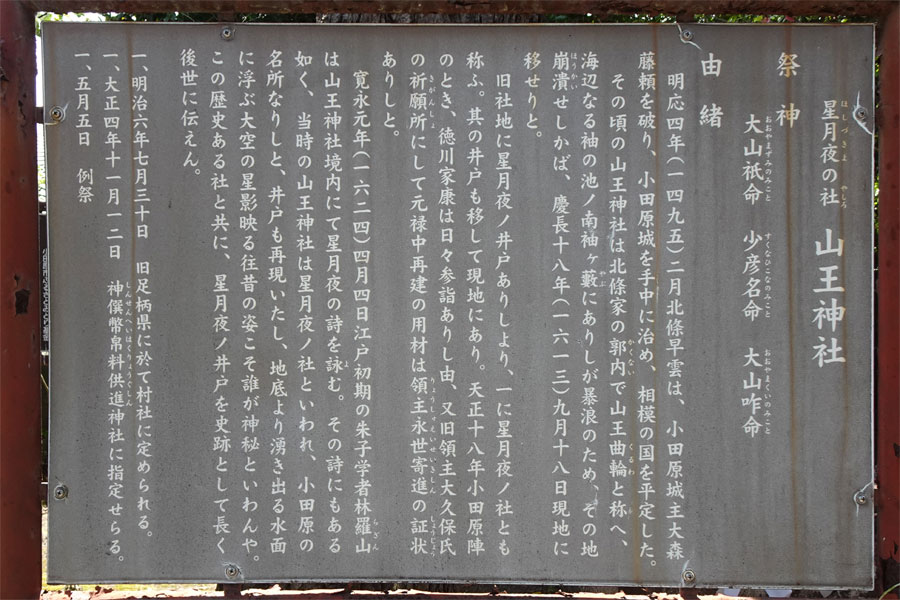 星月夜の社 山王神社
祭神
大山祇命 少彦名命 大山咋命
由緒
明応四年(一四九五)二月北條早雲は、小田原城主大森
藤頼を破り、小田原城を手中に治め、相模の国を平定した。
その頃の山王神社は北條家の郭内で山王曲輪と称へ、
海辺なる袖の池ノ南袖ヶ藪にありしが暴浪のため、その地
崩潰せしかば、慶長十八年(一六一三)九月十八日現地に
移せりと。
旧社地に星月夜ノ井戸ありしより、一に星月夜ノ社とも
称ふ。其の井戸も移して現地にあり。天正十八年小田原陣
のとき、徳川家康は日々参詣ありし由、又旧領主大久保氏
の祈願所にして元禄中再建の用材は領主永世寄進の証状
ありしと。
寛永元年(一六二四)四月四日江戸初期の朱子学者林羅山
は山王神社境内にて星月夜の詩を詠む。その詩にもある
如く、当時の山王神社は星月夜ノ社といわれ、小田原の
名所なりしと、井戸も再現いたし、地底より湧き出る水面
に浮ぶ大空の星影映る往昔の姿こそ誰が神秘といわんや。
この歴史ある社と共に、星月夜ノ井戸を史跡として長く
後世に伝えん。
一、明治六年七月三十日 旧足柄県に於て村社に定められる。
一、大正四年十一月一二日 神饌幣帛料供進神社に指定せらる。
一、五月五日 例祭